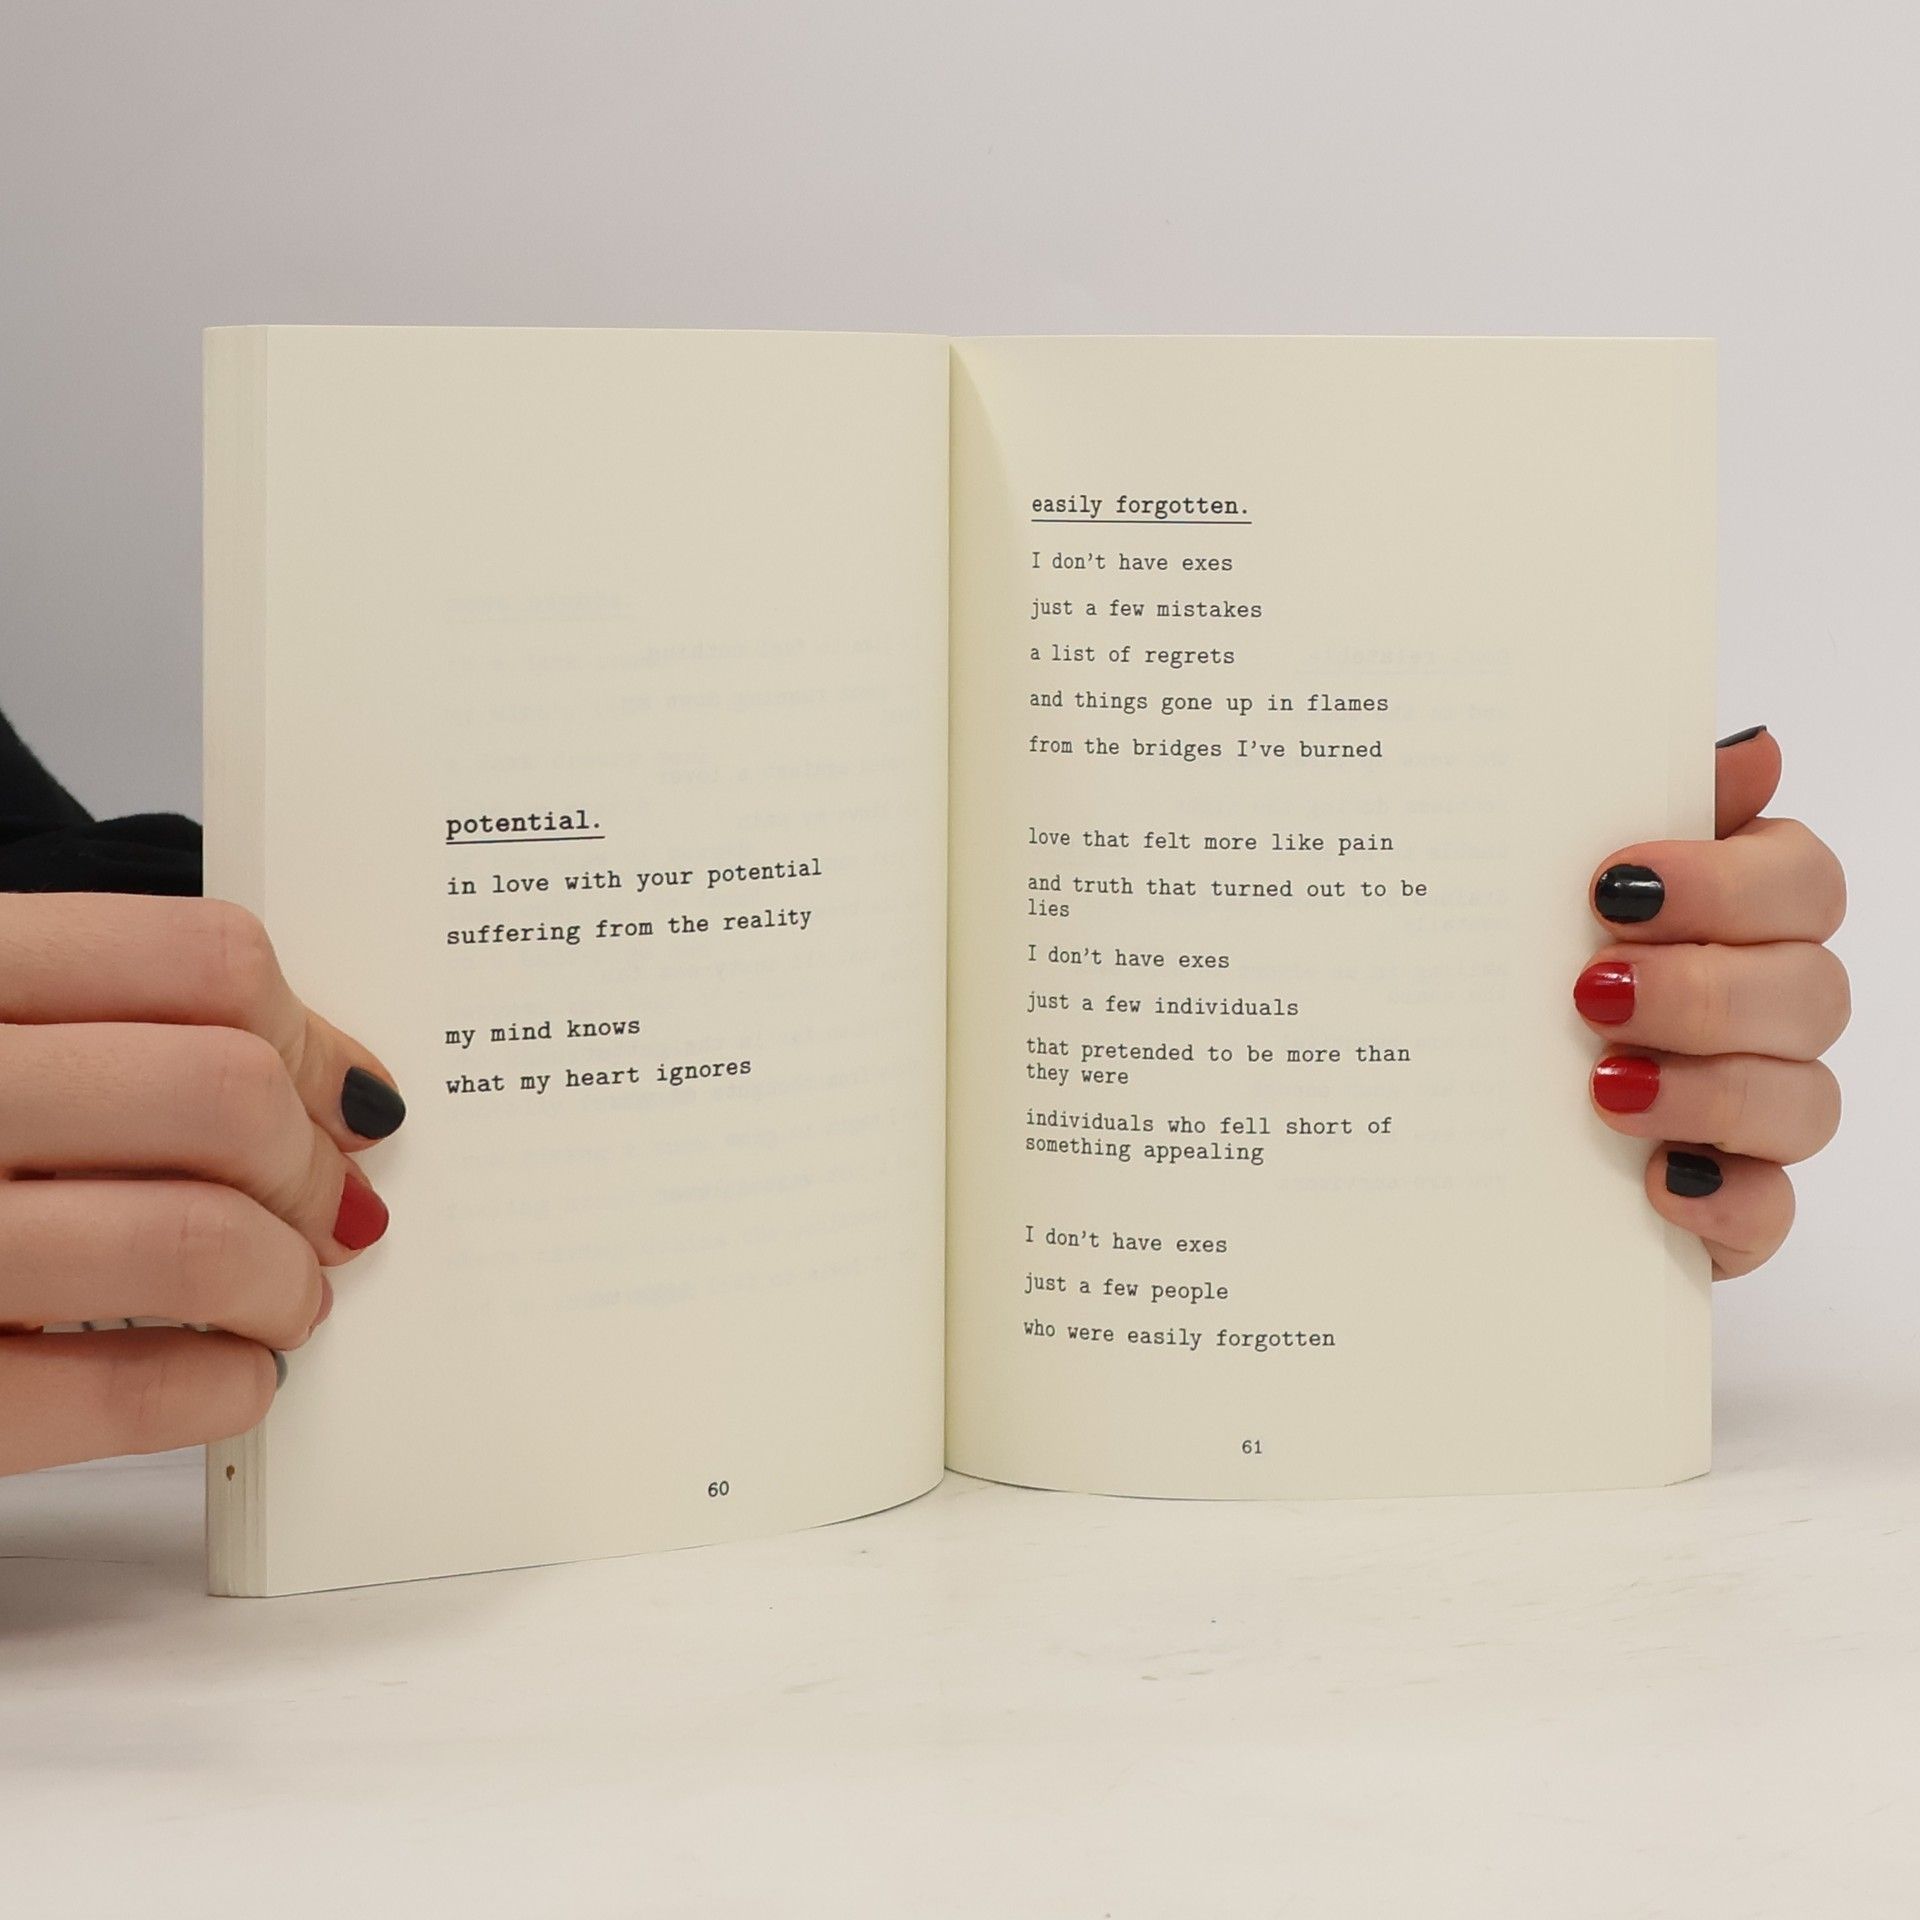 potential.
in love with your potential
suffering from the reality
my mind knows
what my heart ignores
60
easily forgotten.
I don't have exes
just a few mistakes
a list of regrets
and things gone up in flames
from the bridges I've burned
love that felt more like pain
and truth that turned out to be
lies
I don't have exes
just a few individuals
that pretended to be more than
they were
individuals who fell short of
something appealing
I don't have exes
just a few people
who were easily forgotten
61